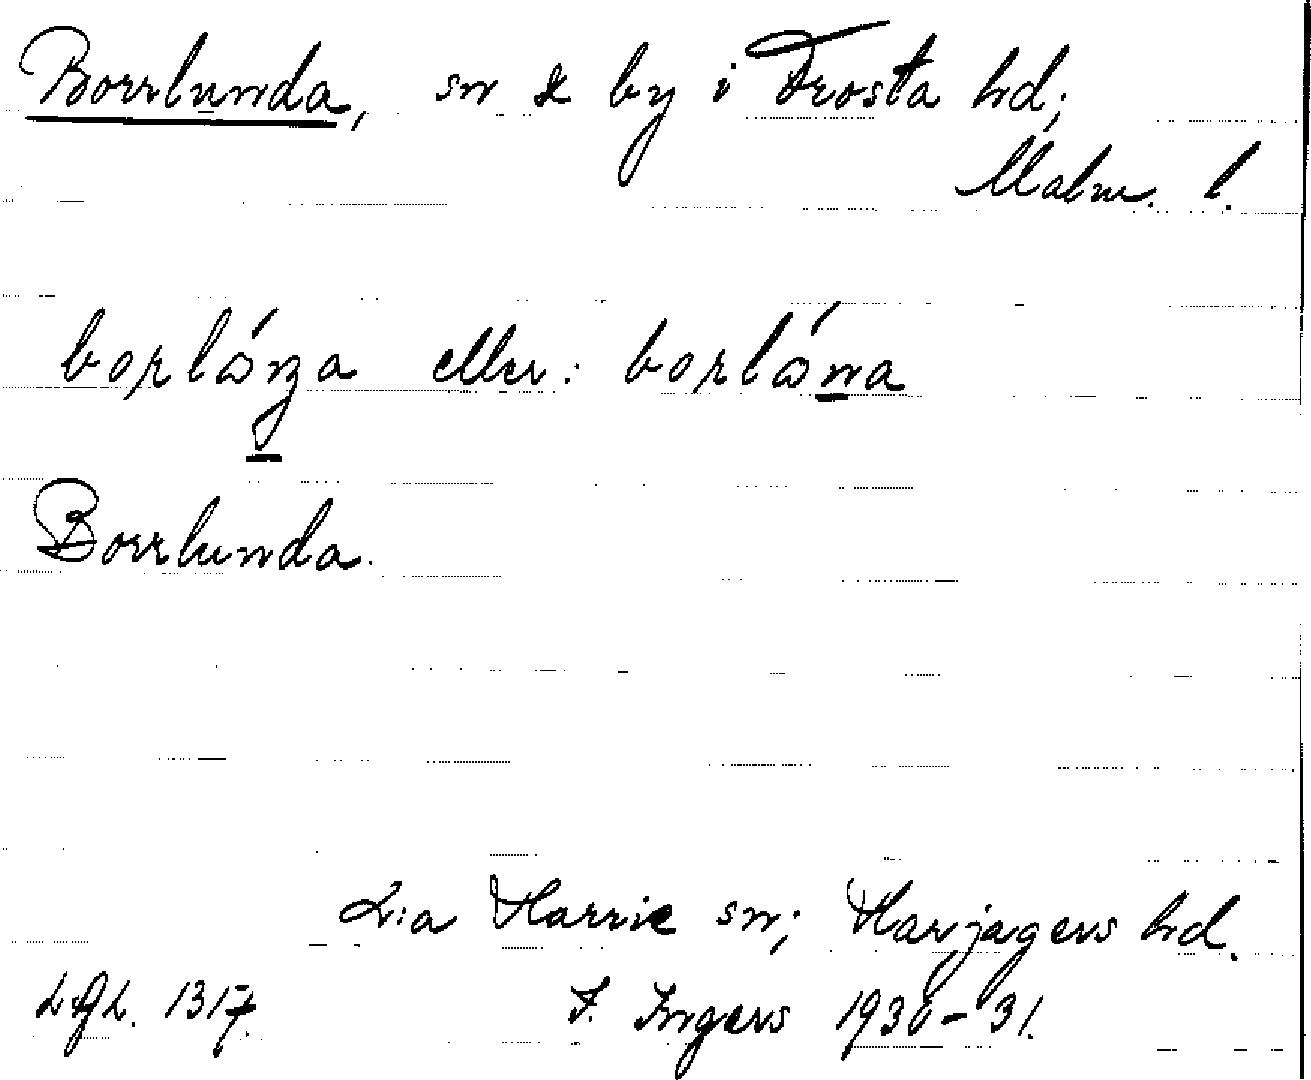 Borrlunda, sn & by i Frosta hd;
Malm. l.
borlóŋa eller: borlóna
Borrlunda.
L:a Harrie sn; Harjagers hd.
LAL. 1317. I. Ingers 1930-31.